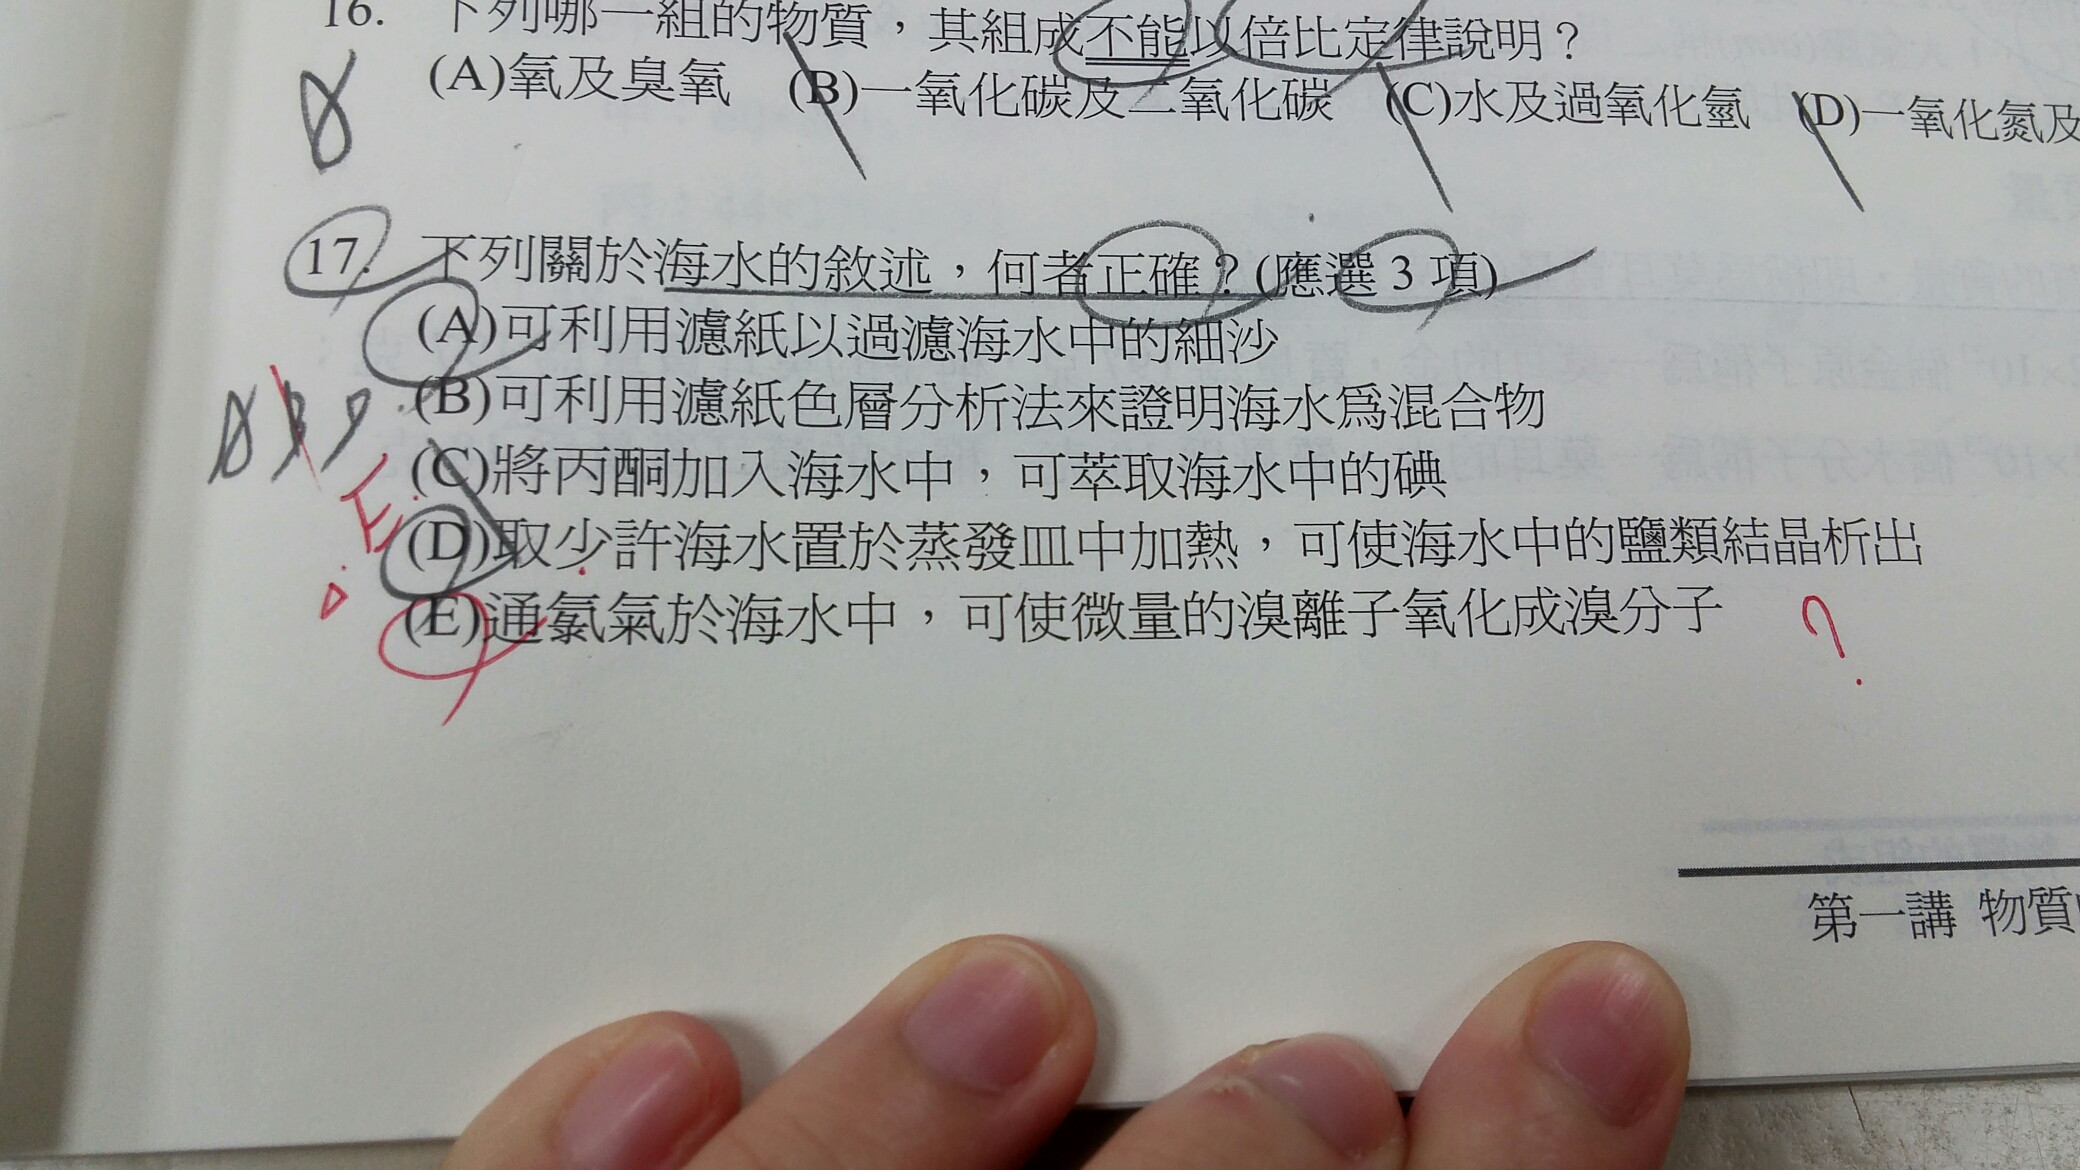 16. 下列哪一組的物質，其組成不能以倍比定律說明？
(A)氧及臭氧 (B)一氧化碳及二氧化碳 (C)水及過氧化氫 (D)一氧化氮及
17. 下列關於海水的敘述，何者正確？(應選3項)
(A)可利用濾紙以過濾海水中的細沙
(B)可利用濾紙色層分析法來證明海水為混合物
(C)將丙酮加入海水中，可萃取海水中的碘
(D)取少許海水置於蒸發皿中加熱，可使海水中的鹽類結晶析出
E
(E)通氯氣於海水中，可使微量的溴離子氧化成溴分子 ?
第一講 物質